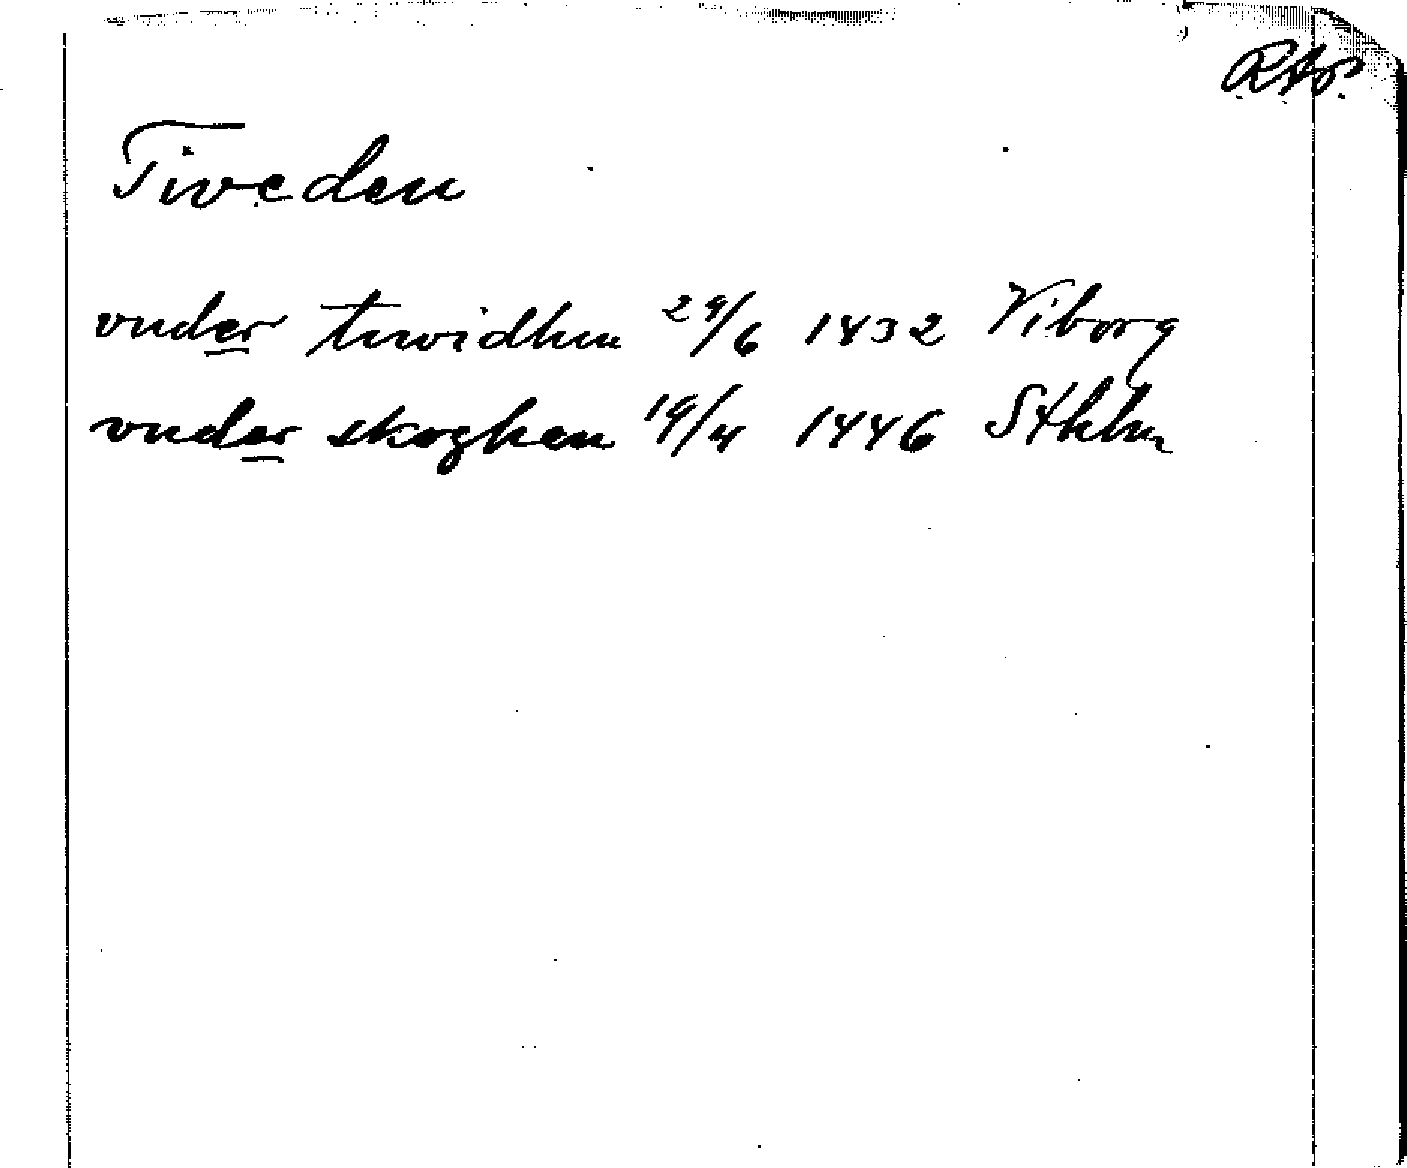 RAp.
Tiveden
vnder tiwidhen 29/6 1432 Viborg
vnder skoghen 19/4 1446 Sthlm